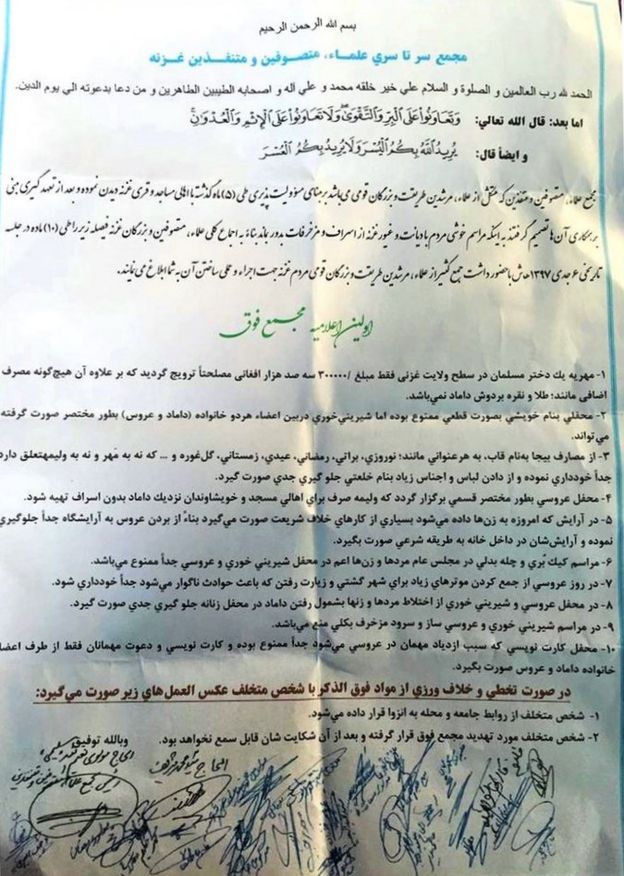 بسم الله الرحمن الرحیم
مجمع سر تا سري علماء، متصوفین و متنفذین غزنه
الحمد لله رب العالمین و الصلوة و السلام علي خیر خلقه محمد و علي آله و اصحابه الطیبین الطاهرین و من دعا بدعوته الي یوم الدین.
اما بعد: قال الله تعالي: وَتَعَاوَنُوا عَلَى الْبِرِّ وَالتَّقْوَىٰ وَلَا تَعَاوَنُوا عَلَى الْإِثْمِ وَالْعُدْوَانِ
و ایضاً قال: يُرِيدُ اللَّهُ بِكُمُ الْيُسْرَ وَلَا يُرِيدُ بِكُمُ الْعُسْرَ
مجمع علماء، متصوفین و متنفذین که متشکل از علماء، مرشدین طریقت و بزرگان قومی می‌باشد بر مبنای مسؤولیت پذیری طی (۵) ماه گذشته با اهالی مساجد و قری غزنه دیدن نموده و بعد از تعهد گیری مبنی
بر همکاری آن‌ها تصمیم گرفتند به اینکه مراسم خوشی مردم با دیانت و غیور غزنه از اسراف و مزخرفات بدور بماند بناءً به اجماع کلی علماء، متصوفین و بزرگان غزنه فیصله زیر را طی (۱۰) ماده در جلسه
تاریخی ۶ جدی ۱۳۹۷ هـ‌ش با حضور داشت جمع کثیر از علماء، مرشدین طریقت و بزرگان قومی مردم غزنه جهت اجراء و عملی ساختن آن به شما ابلاغ می‌نمایند.
اولین اعلامیه مجمع فوق
۱- مهریه یك دختر مسلمان در سطح ولایت غزنی فقط مبلغ /۳۰۰۰۰۰ سه صد هزار افغانی مصلحتاً ترویج گردید که بر علاوه آن هیچ‌گونه مصرف
اضافی مانند؛ طلا و نقره بردوش داماد نمی‌باشد.
۲- محفلي بنام خویشي بصورت قطعي ممنوع بوده اما شیریني‌خوري دربین اعضاء هردو خانواده (داماد و عروس) بطور مختصر صورت گرفته
می‌تواند.
۳- از مصارف بیجا به‌نام قاب، به هرعنوانی مانند؛ نوروزي، براتي، رمضاني، عیدي، زمستاني، گل‌غوره و ... که نه به مَهر و نه به ولیمه‌تعلق دارد
جداً خودداري نموده و از دادن لباس و اجناس زیاد بنام خلعتي جلو گیري جدي صورت گیرد.
۴- محفل عروسي بطور مختصر قسمي برگزار گردد که ولیمه صرف براي اهالي مسجد و خویشاوندان نزدیك داماد بدون اسراف تهیه شود.
۵- در آرایش که امروزه به زن‌ها داده می‌شود بسیاري از کارهاي خلاف شریعت صورت می‌گیرد بناءً از بردن عروس به آرایشگاه جداً جلوگیري
نموده و آرایش‌شان در داخل خانه به طریقه شرعي صورت بگیرد.
۶- مراسم کیك بُري و چله بدلي در مجلس عام مردها و زن‌ها اعم در محفل شیریني خوري و عروسي جداً ممنوع می‌باشد.
۷- در روز عروسي از جمع کردن موترهاي زیاد براي شهر گشتي و زیارت رفتن که باعث حوادث ناگوار می‌شود جداً خودداري شود.
۸- در محفل عروسي و شیریني خوري از اختلاط مردها و زنها بشمول رفتن داماد در محفل زنانه جلو گیري جدي صورت گیرد.
۹- در مراسم شیریني خوري و عروسي ساز و سرود مزخرف بکلي منع می‌باشد.
۱۰- محفل کارت نویسي که سبب ازدیاد مهمان در عروسي می‌شود جداً ممنوع بوده و کارت نویسي و دعوت مهمانان فقط از طرف اعضاء
خانواده داماد و عروس صورت بگیرد.
در صورت تخطي و خلاف ورزي از مواد فوق الذکر با شخص متخلف عکس العمل‌هاي زیر صورت می‌گیرد:
۱- شخص متخلف از روابط جامعه و محله به انزوا قرار داده می‌شود.
۲- شخص متخلف مورد تهدید مجمع فوق قرار گرفته و بعد از آن شکایت شان قابل سمع نخواهد بود.
وبالله توفیق